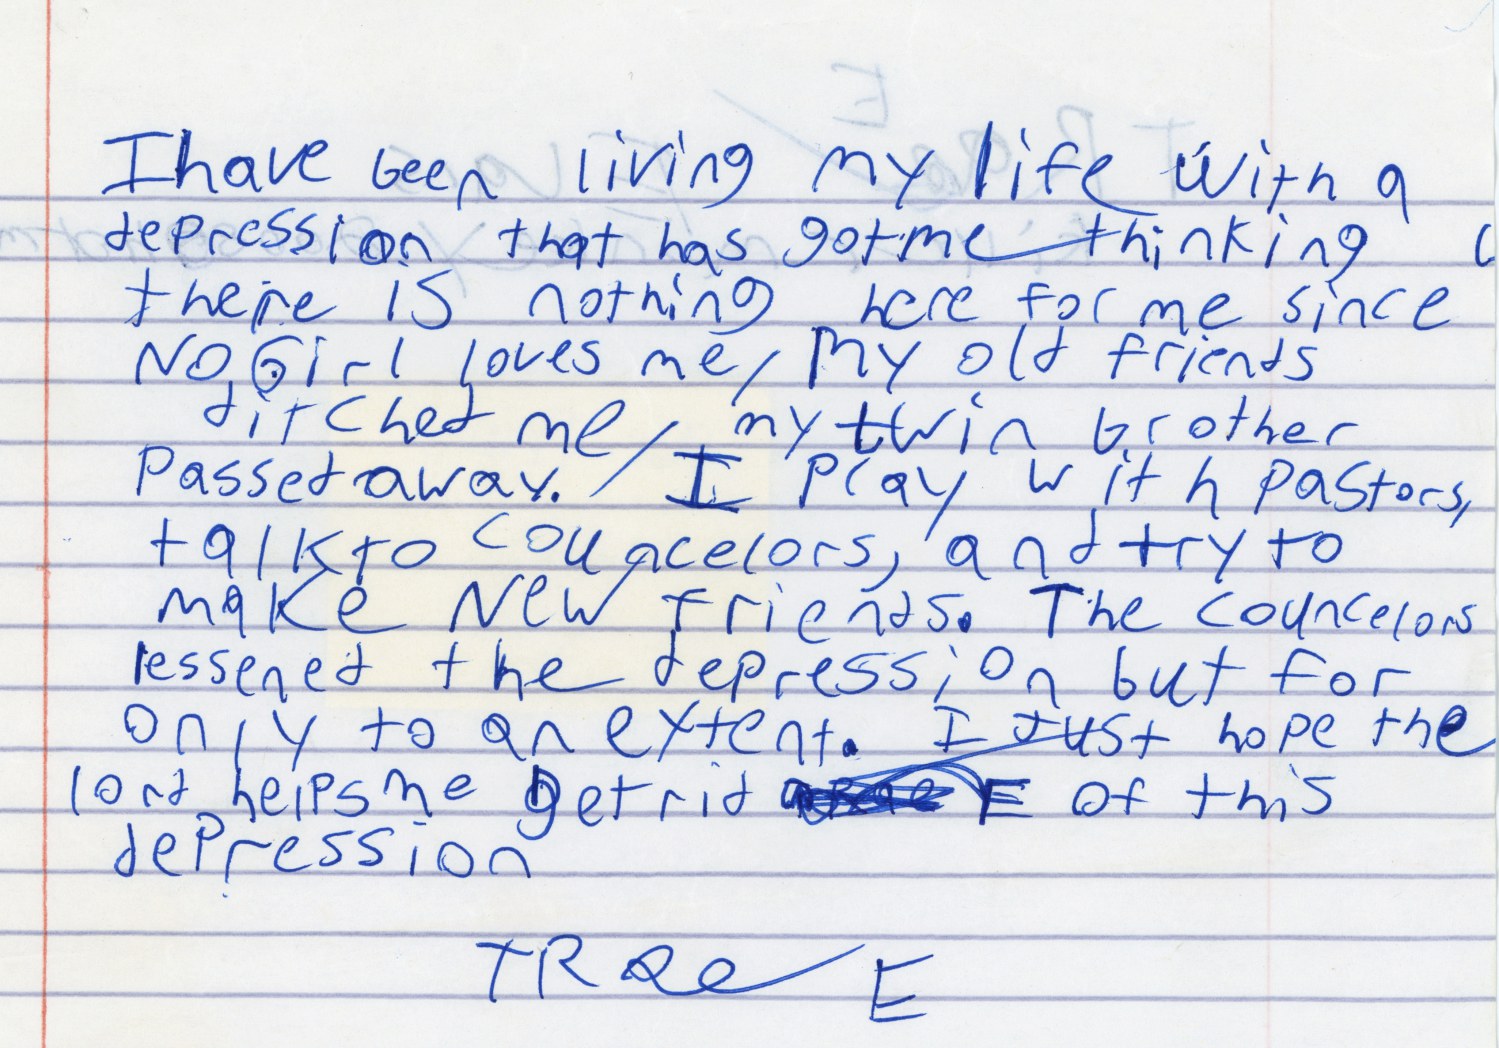 I have been living my life with a
depression that has got me thinking
there is nothing here for me since
No Girl loves me, My old friends
ditched me, my twin brother
Passed away. I Play with pastors,
talk to councelors, and try to
make New friends. The councelors
lessened the depression but for
only to an extent. I Just hope the
lord helps me get rid of this
depression
TRae E